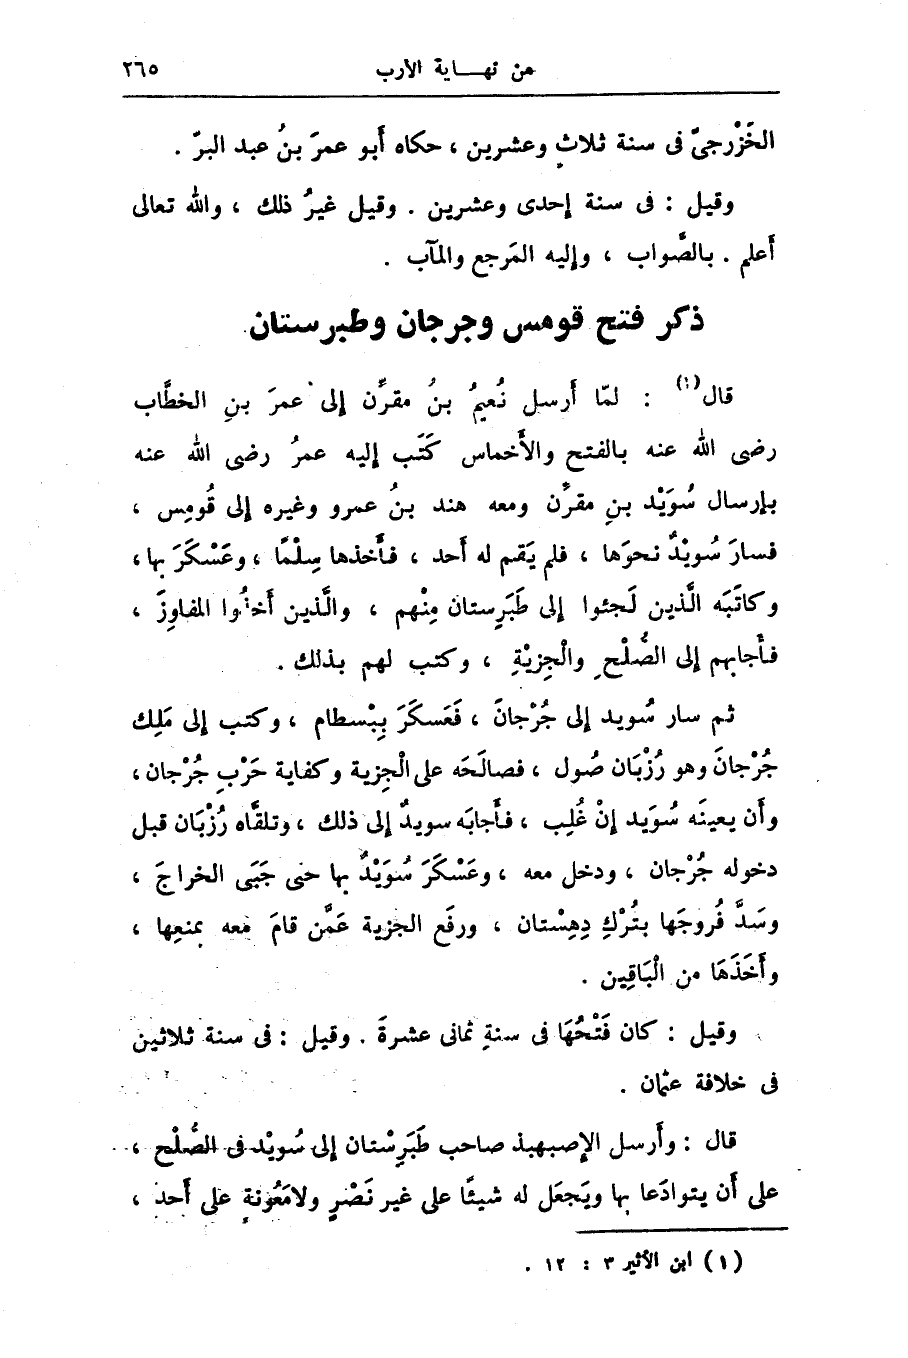 من نهاية الأرب ٢٦٥
الخَزْرجىّ فى سنة ثلاثٍ وعشرين ، حكاه أبو عمرَ بنُ عبد البرّ .
وقيل : فى سنة إحدى وعشرين . وقيل غيرُ ذلك ، والله تعالى
أعلم . بالصَّواب ، وإليه المَرجع والمآب .
ذكر فتح قومس وجرجان وطبرستان
قال (١) : لمّا أرسل نُعيمُ بنُ مقرِّن إلى عمرَ بنِ الخطَّاب
رضى الله عنه بالفتح والأخماس كَتَب إليه عمرُ رضى الله عنه
بإرسال سُوَيْد بنِ مقرِّن ومعه هند بنُ عمرو وغيره إلى قُومِس ،
فسارَ سُويْدٌ نحوَها ، فلم يَقم له أحد ، فأخذها سِلْمًا ، وعَسْكَرَ بها ،
وكاتَبَه الَّذين لَجئوا إلى طَبَرِستان مِنْهم ، والَّذين أخذُوا المفاوِزَ ،
فأجابهم إلى الصُّلْحِ والْجِزيْةِ ، وكتب لهم بذلك .
ثم سار سُويد إلى جُرْجانَ ، فَعَسكَرَ بِبْسطام ، وكتب إلى مَلِك
جُرْجانَ وهو رُزْبَان صُول ، فصالَحَه على الْجِزية وكفاية حَرْبِ جُرْجان ،
وأن يعينَه سُوَيد إنْ غُلِب ، فأجابَه سويدٌ إلى ذلك ، وتلقَّاه رُزْبَان قبل
دخوله جُرْجان ، ودخل معه ، وعَسْكَرَ سُوَيْدٌ بها حتى جَبَى الخراجَ ،
وسَدَّ فُروجَها بتُرْكِ دِهِسْتان ، ورفَع الجزية عَمَّن قامَ معه بمنعِها ،
وأخَذَهَا من الْبَاقِين .
وقيل : كان فَتْحُهَا فى سنةِ ثمانى عشرةَ . وقيل : فى سنة ثلاثين
فى خلافة عثمان .
قال : وأرسل الإصبهبذ صاحب طَبَرِسْتان إلى سُويْد فى الصُّلْح ،
على أن يتوادَعا بها ويَجعَل له شيئًا على غير نَصْرٍ ولا مَعُونةٍ على أحد ،
(١) ابن الأثير ٣ : ١٢ .